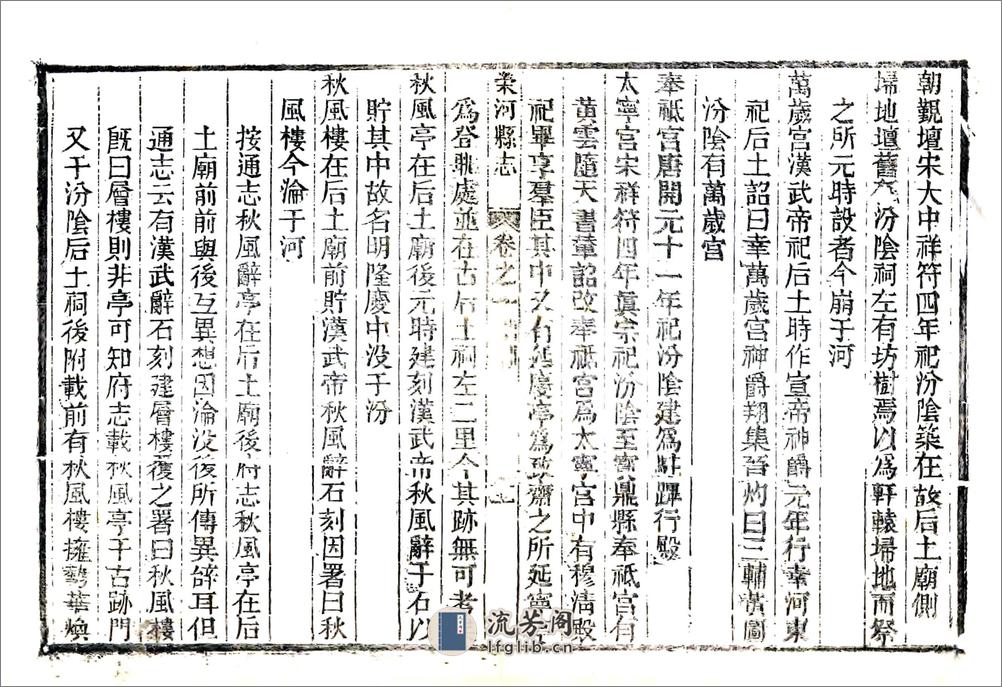 朝覲壇宋大中祥符四年祀汾陰築在故后土廟側
埽地壇舊在汾陰祠左有坊樹焉以爲軒轅埽地而祭
之所元時設者今崩于河
萬歲宮漢武帝祀后土時作宣帝神爵元年行幸河東
祀后土詔曰幸萬歲宮神爵翔集晉灼曰三輔黃圖
汾陰有萬歲宮
奉祗宮唐開元十一年祀汾陰建爲駐蹕行殿
太寧宮宋祥符四年眞宗祀汾陰至寶鼎縣奉祗宮有
黃雲隨天書輦詔改奉祗宮爲太寧宮中有穆淸殿
祀畢享羣臣其中又有延慶亭爲致齋之所延寧
爲登眺處並在古后土祠左二里今其跡無可考
榮河縣志
卷之
秋風亭在后土廟後元時建刻漢武帝秋風辭于石以
貯其中故名明隆慶中没于汾
秋風樓在后土廟前貯漢武帝秋風辭石刻因署曰秋
風樓今淪于河
按通志秋風辭亭在后土廟後府志秋風亭在后
土廟前前與後互異想因淪没後所傳異辭耳但
通志云有漢武辭石刻建層樓覆之署曰秋風樓
旣曰層樓則非亭可知府志載秋風亭于古跡門
又于汾陰后土祠後附載前有秋風樓擁勢華煥
流芳阁
lfglib.cn